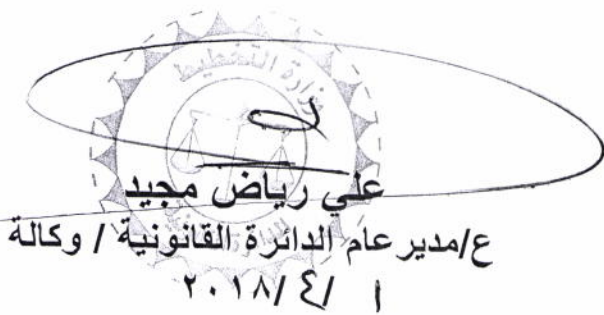 وزارة التخطيط
علي رياض مجيد
ع/مدير عام الدائرة القانونية / وكالة
١ /٤/ ٢٠١٨